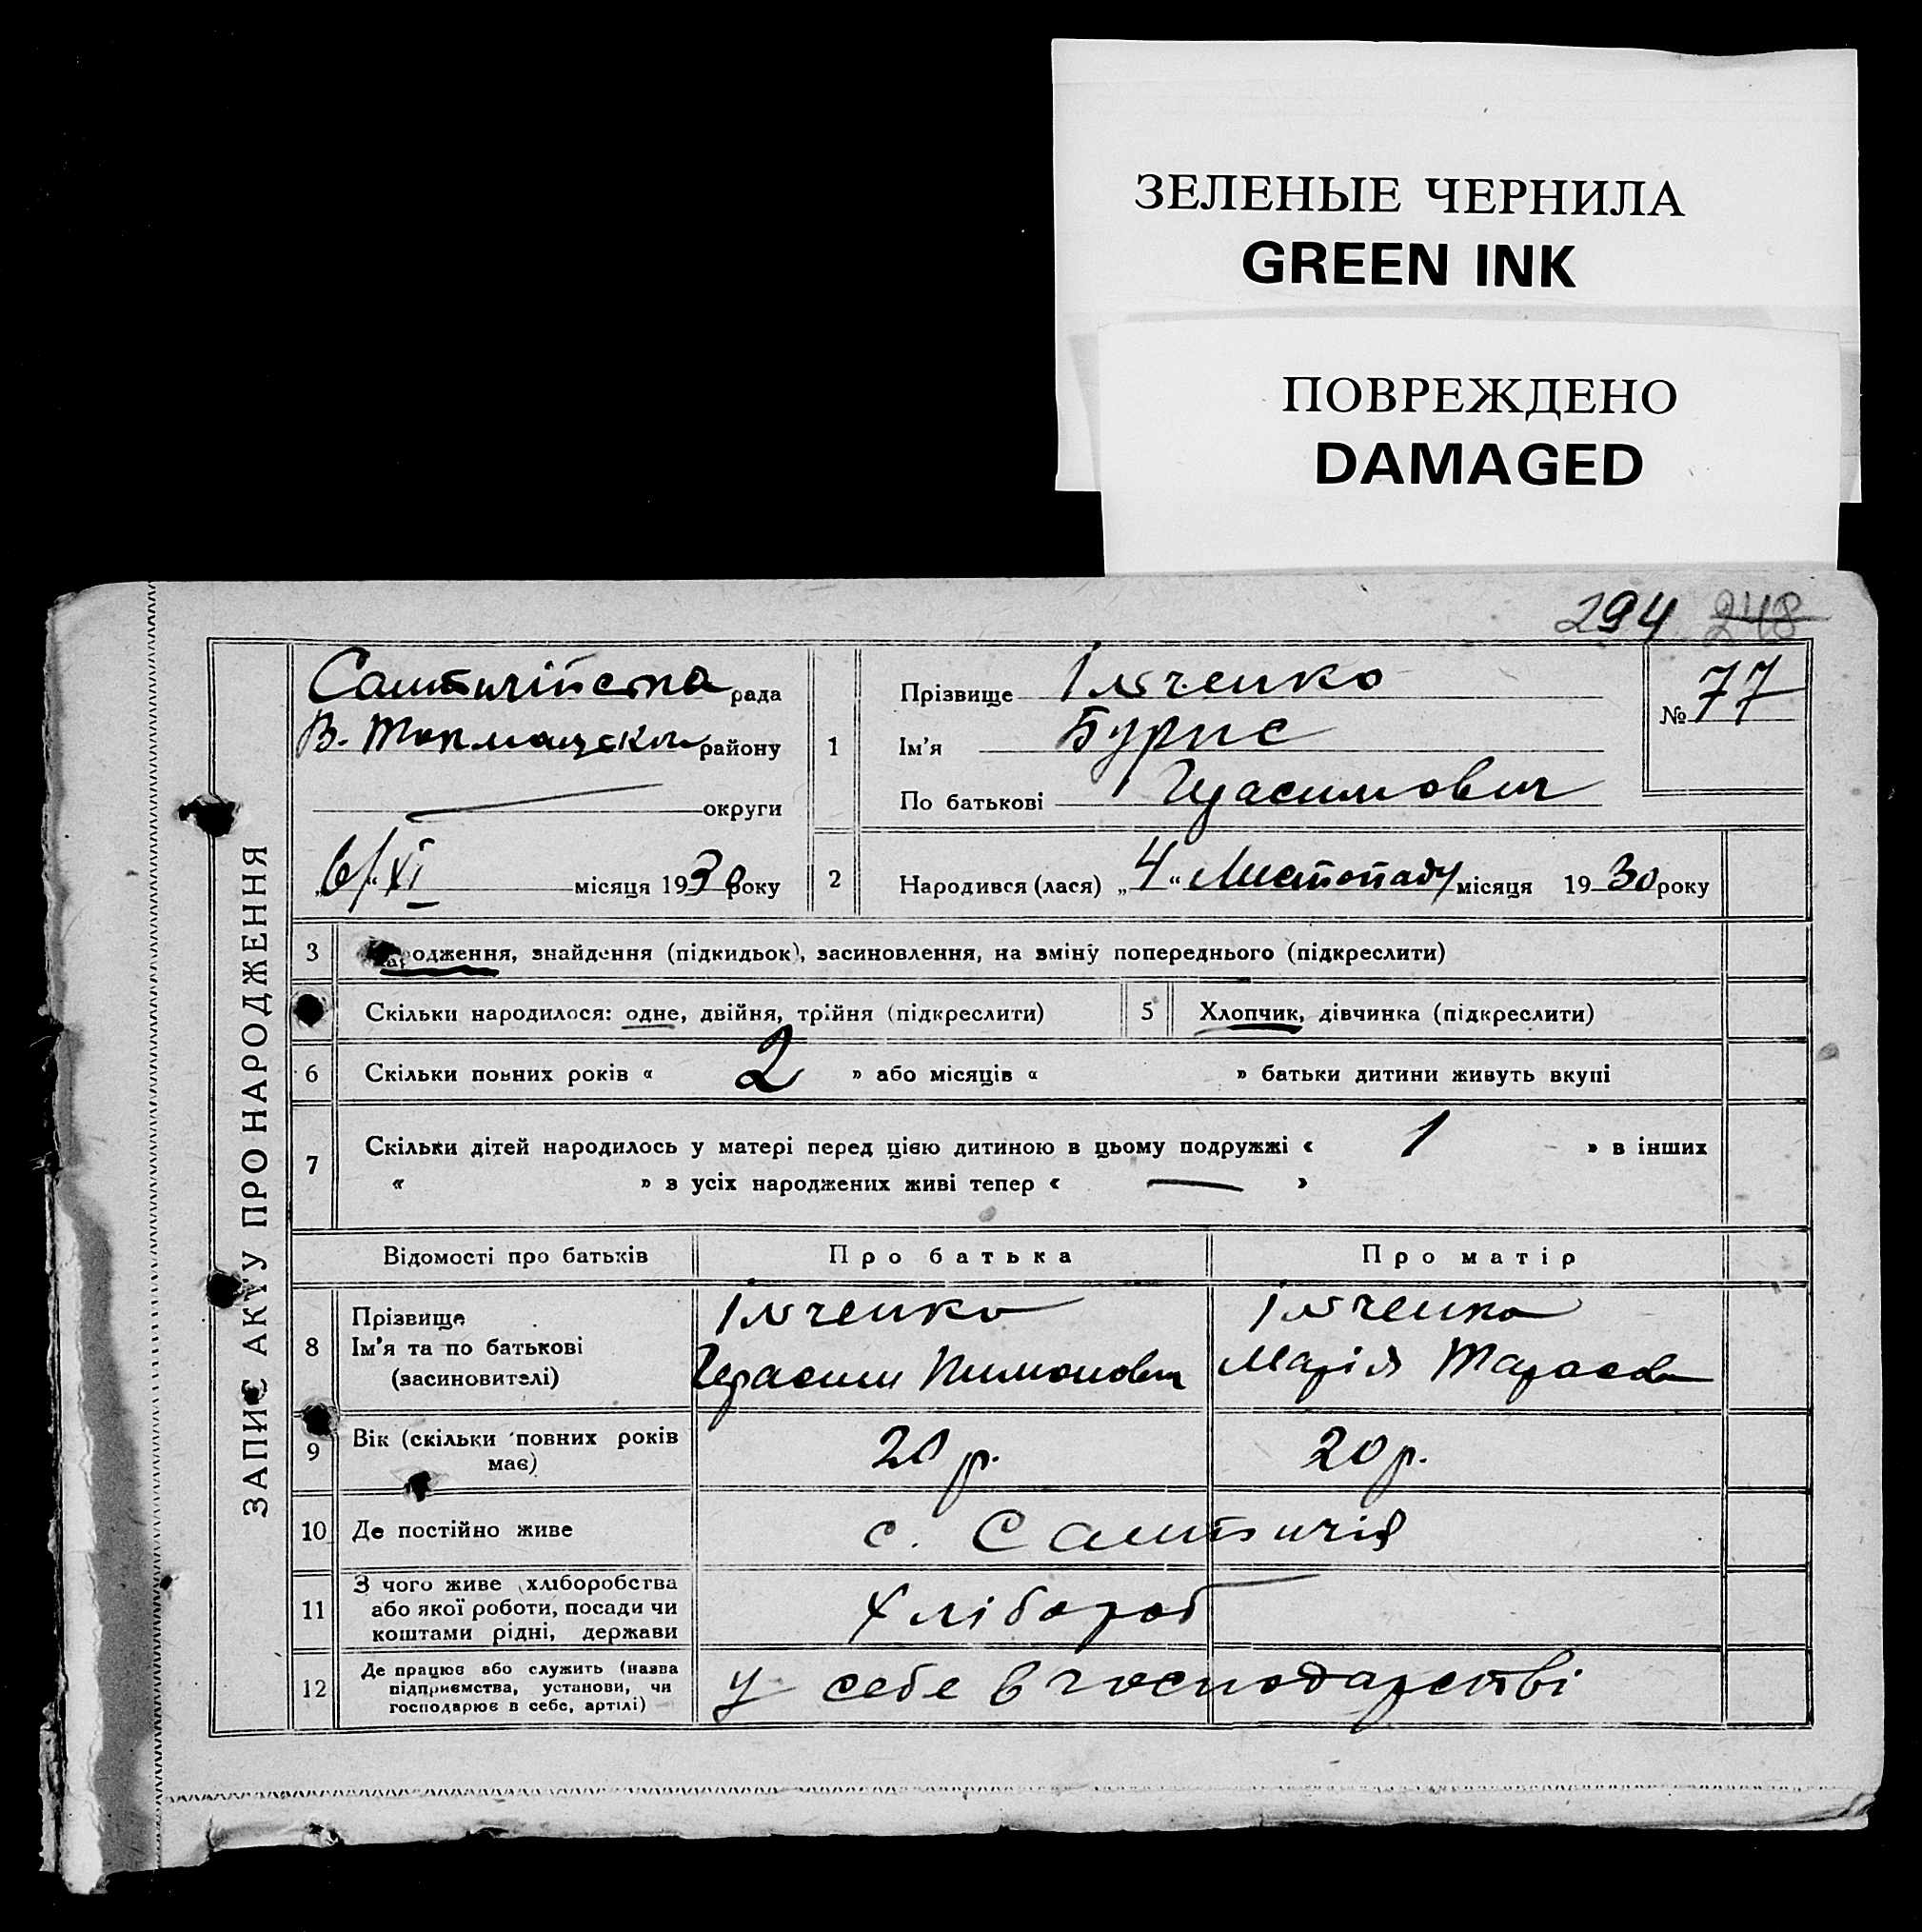 ЗЕЛЕНЫЕ ЧЕРНИЛА
GREEN INK
ПОВРЕЖДЕНО
DAMAGED
294 248
ЗАПИС АКТУ ПРО НАРОДЖЕННЯ
рада
В. Токмацьк району
округи
„6/“ XI місяця 1930 року
1
Прізвище Ільченко
Ім'я Бурис
По батькові Герасимович
№ 77
2 Народився (лася) „4“ Листопаду місяця 1930 року
3 народження, знайдення (підкидьок), засиновлення, на зміну попереднього (підкреслити)
Скільки народилося: одне, двійня, трійня (підкреслити) 5 Хлопчик, дівчинка (підкреслити)
6 Скільки повних років « 2 » або місяців « » батьки дитини живуть вкупі
7 Скільки дітей народилось у матері перед цією дитиною в цьому подружжі « 1 » в інших
« » в усіх народжених живі тепер « — »
Відомості про батьків Про батька Про матір
8 Прізвище Ільченко Ільченко
Ім'я та по батькові Герасим Пимонович Марія Тарасов
(засиновителі)
9 Вік (скільки повних років має) 20 р. 20 р.
10 Де постійно живе с. Салтичія
11 З чого живе (хліборобства
або якої роботи, посади чи
коштами рідні, держави Хлібороб
12 Де працює або служить (назва
підприємства, установи, чи
господарює в себе, артілі) у себе в господарстві